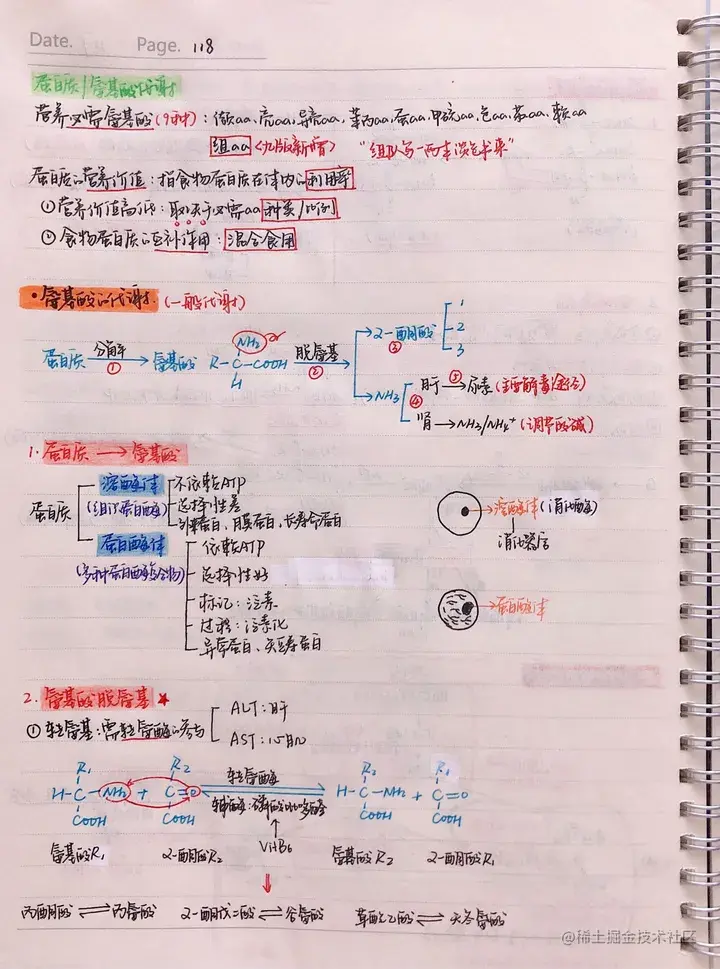 Date.
Page. 118
蛋白质/氨基酸代谢
营养必需氨基酸(9种)：缬aa,亮aa,异亮aa,苯丙aa,蛋aa,甲硫aa,色aa,苏aa,赖aa
组aa<九版新增> "组队写一两本淡色书来"
蛋白质的营养价值：指食物蛋白质在体内的利用率
①营养价值高低：取决于必需aa种类/比例
②食物蛋白质的互补作用：混合食用
·氨基酸的代谢.(一般代谢)
蛋白质 分解 ① 氨基酸 R-C-COOH NH₂ H 脱氨基 ②
2-酮酸 ③ 1 2 3
NH3 ④ 肝 ⑤ 尿素(主要解毒途径)
肾 → NH3/NH4⁺(调节酸碱)
1.蛋白质 → 氨基酸
蛋白质
溶酶体 (组织蛋白酶)
不依赖ATP
选择性差
外来蛋白、膜蛋白、长寿命蛋白
蛋白酶体
(多种蛋白酶复合物)
依赖ATP
选择性好
标记：泛素
过程：泛素化
异常蛋白、短寿蛋白
溶酶体(消化酶)
消化器官
蛋白酶体
2.氨基酸脱氨基★
①转氨基：需转氨酶的参与
ALT：肝
AST：心肌
R₁ H-C-NH₂ COOH + R₂ C=O COOH 转氨酶 R₂ H-C-NH₂ COOH + R₁ C=O COOH
辅酶：磷酸吡哆醛
VitB6
氨基酸R₁ 2-酮酸R₂ 氨基酸R₂ 2-酮酸R₁
丙酮酸⇌丙氨酸 2-酮戊二酸⇌谷氨酸 草酰乙酸⇌天冬氨酸
@稀土掘金技术社区